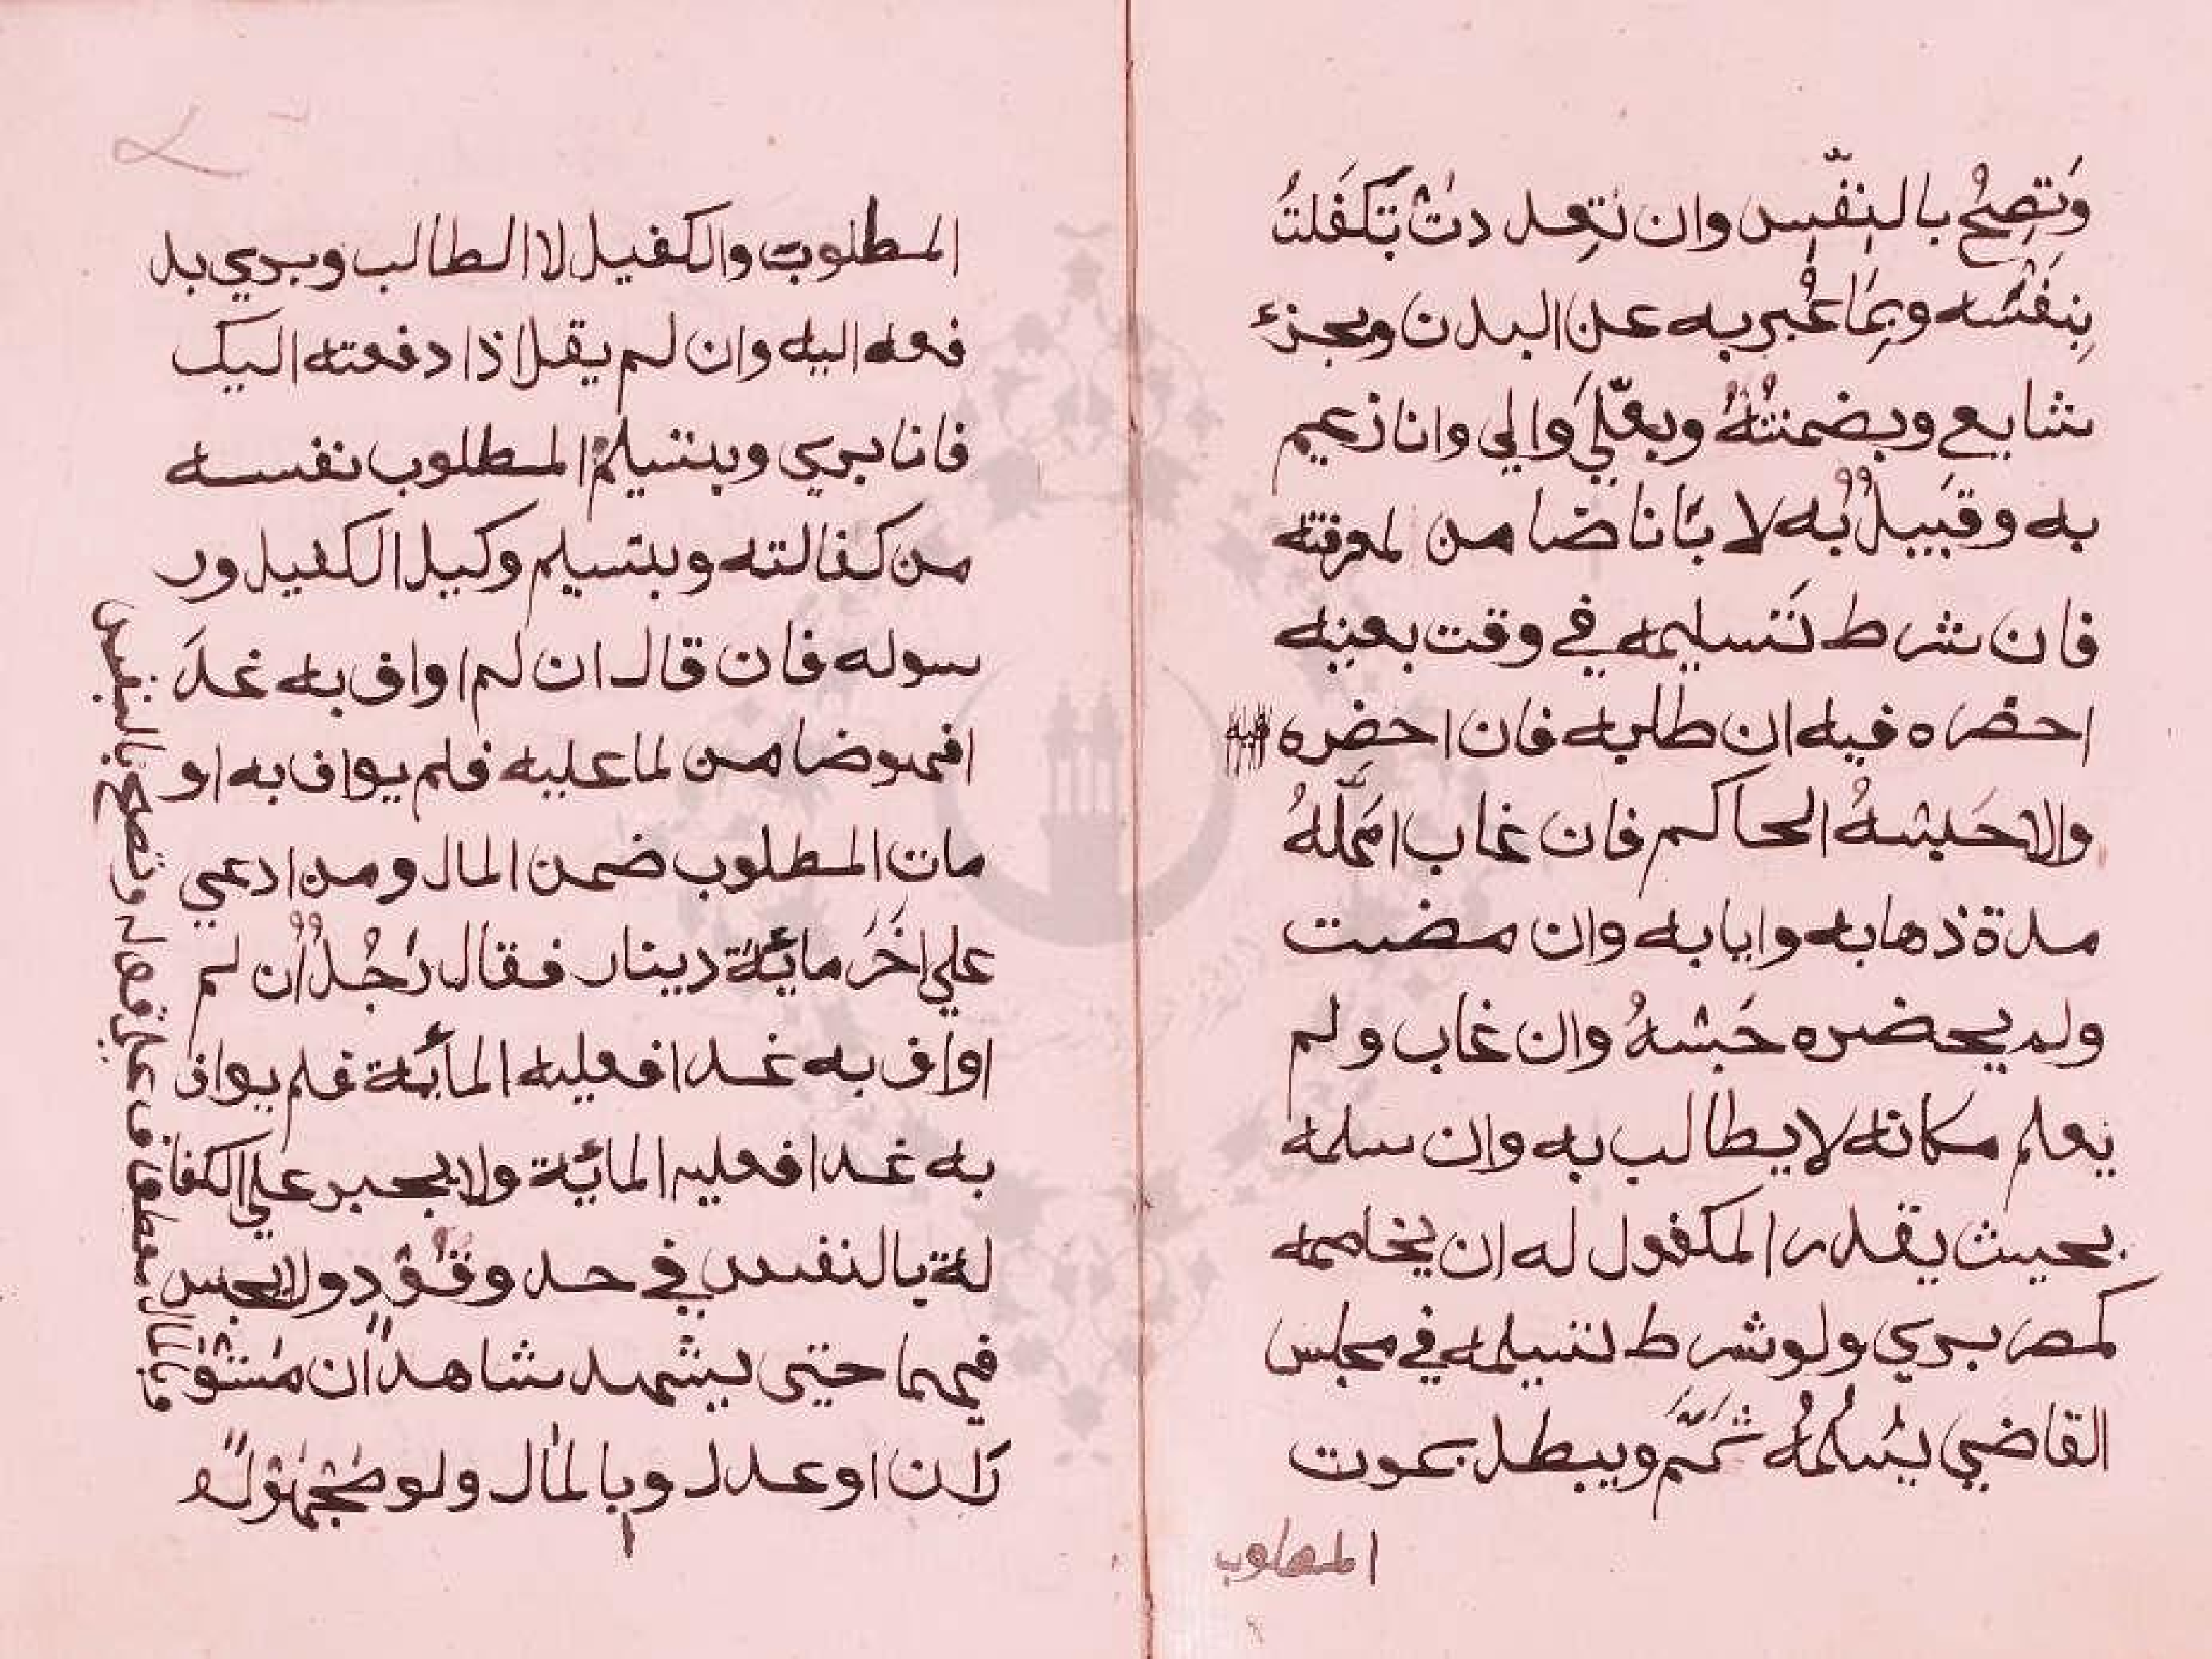 وَتَصِحُّ بالنفس وان تعددت بتَكَفَلتُ
بِنَفْسه وبِمَا عُبر به عن البدن وبجزء
شايع وبضمنتُهُ وبعَلَيَّ والي وانا زعيم
به وقَبيلٌ به لا بأنا ضامن لمعرفته
فان شرط تَسليمه في وقت بعينه
احضره فيه ان طلبه فان احضره فيه
والا حَبسهُ الحاكم فان غاب امهَلَهُ
مدة ذهابه وايابه وان مضت
ولم يحضره حَبسهُ وان غاب ولم
يعلم مكانه لا يطالب به وان سلمه
بحيث يقدر المكفول له ان يخاصمه
كمصر بري ولو شرط تسيلمه في مجلس
القاضي يُسَلمُهُ ثَمَّ ويبطل بموت
المطلوب
المطلوب والكفيل لا الطالب وبري بد
فعه اليه وان لم يقل اذا دفعته اليك
فانا بري وبتسيلم المطلوب نفسه
من كفالته وبتسيلم وكيل الكفيل ور
سوله فان قال ان لم اواف به غدَ
افهو ضامن لما عليه فلم يواف به او
مات المطلوب ضمن المال ومن ادعي
علي اخَرَ مائة دينار فقال رَجُلٌ ان لم
اواف به غدا فعليه المائة فلم يواف
به غدا فعليه المائة ولا يجبر علي الكفا
لة بالنفس في حد وقَوَدٍ ولا يحبس
فيهما حتى يشهد شاهدان مستو
رَان او عدل وبالمال ولو مجهولاً
وتصح بالنفس
معطوف علي قوله
وبالمال